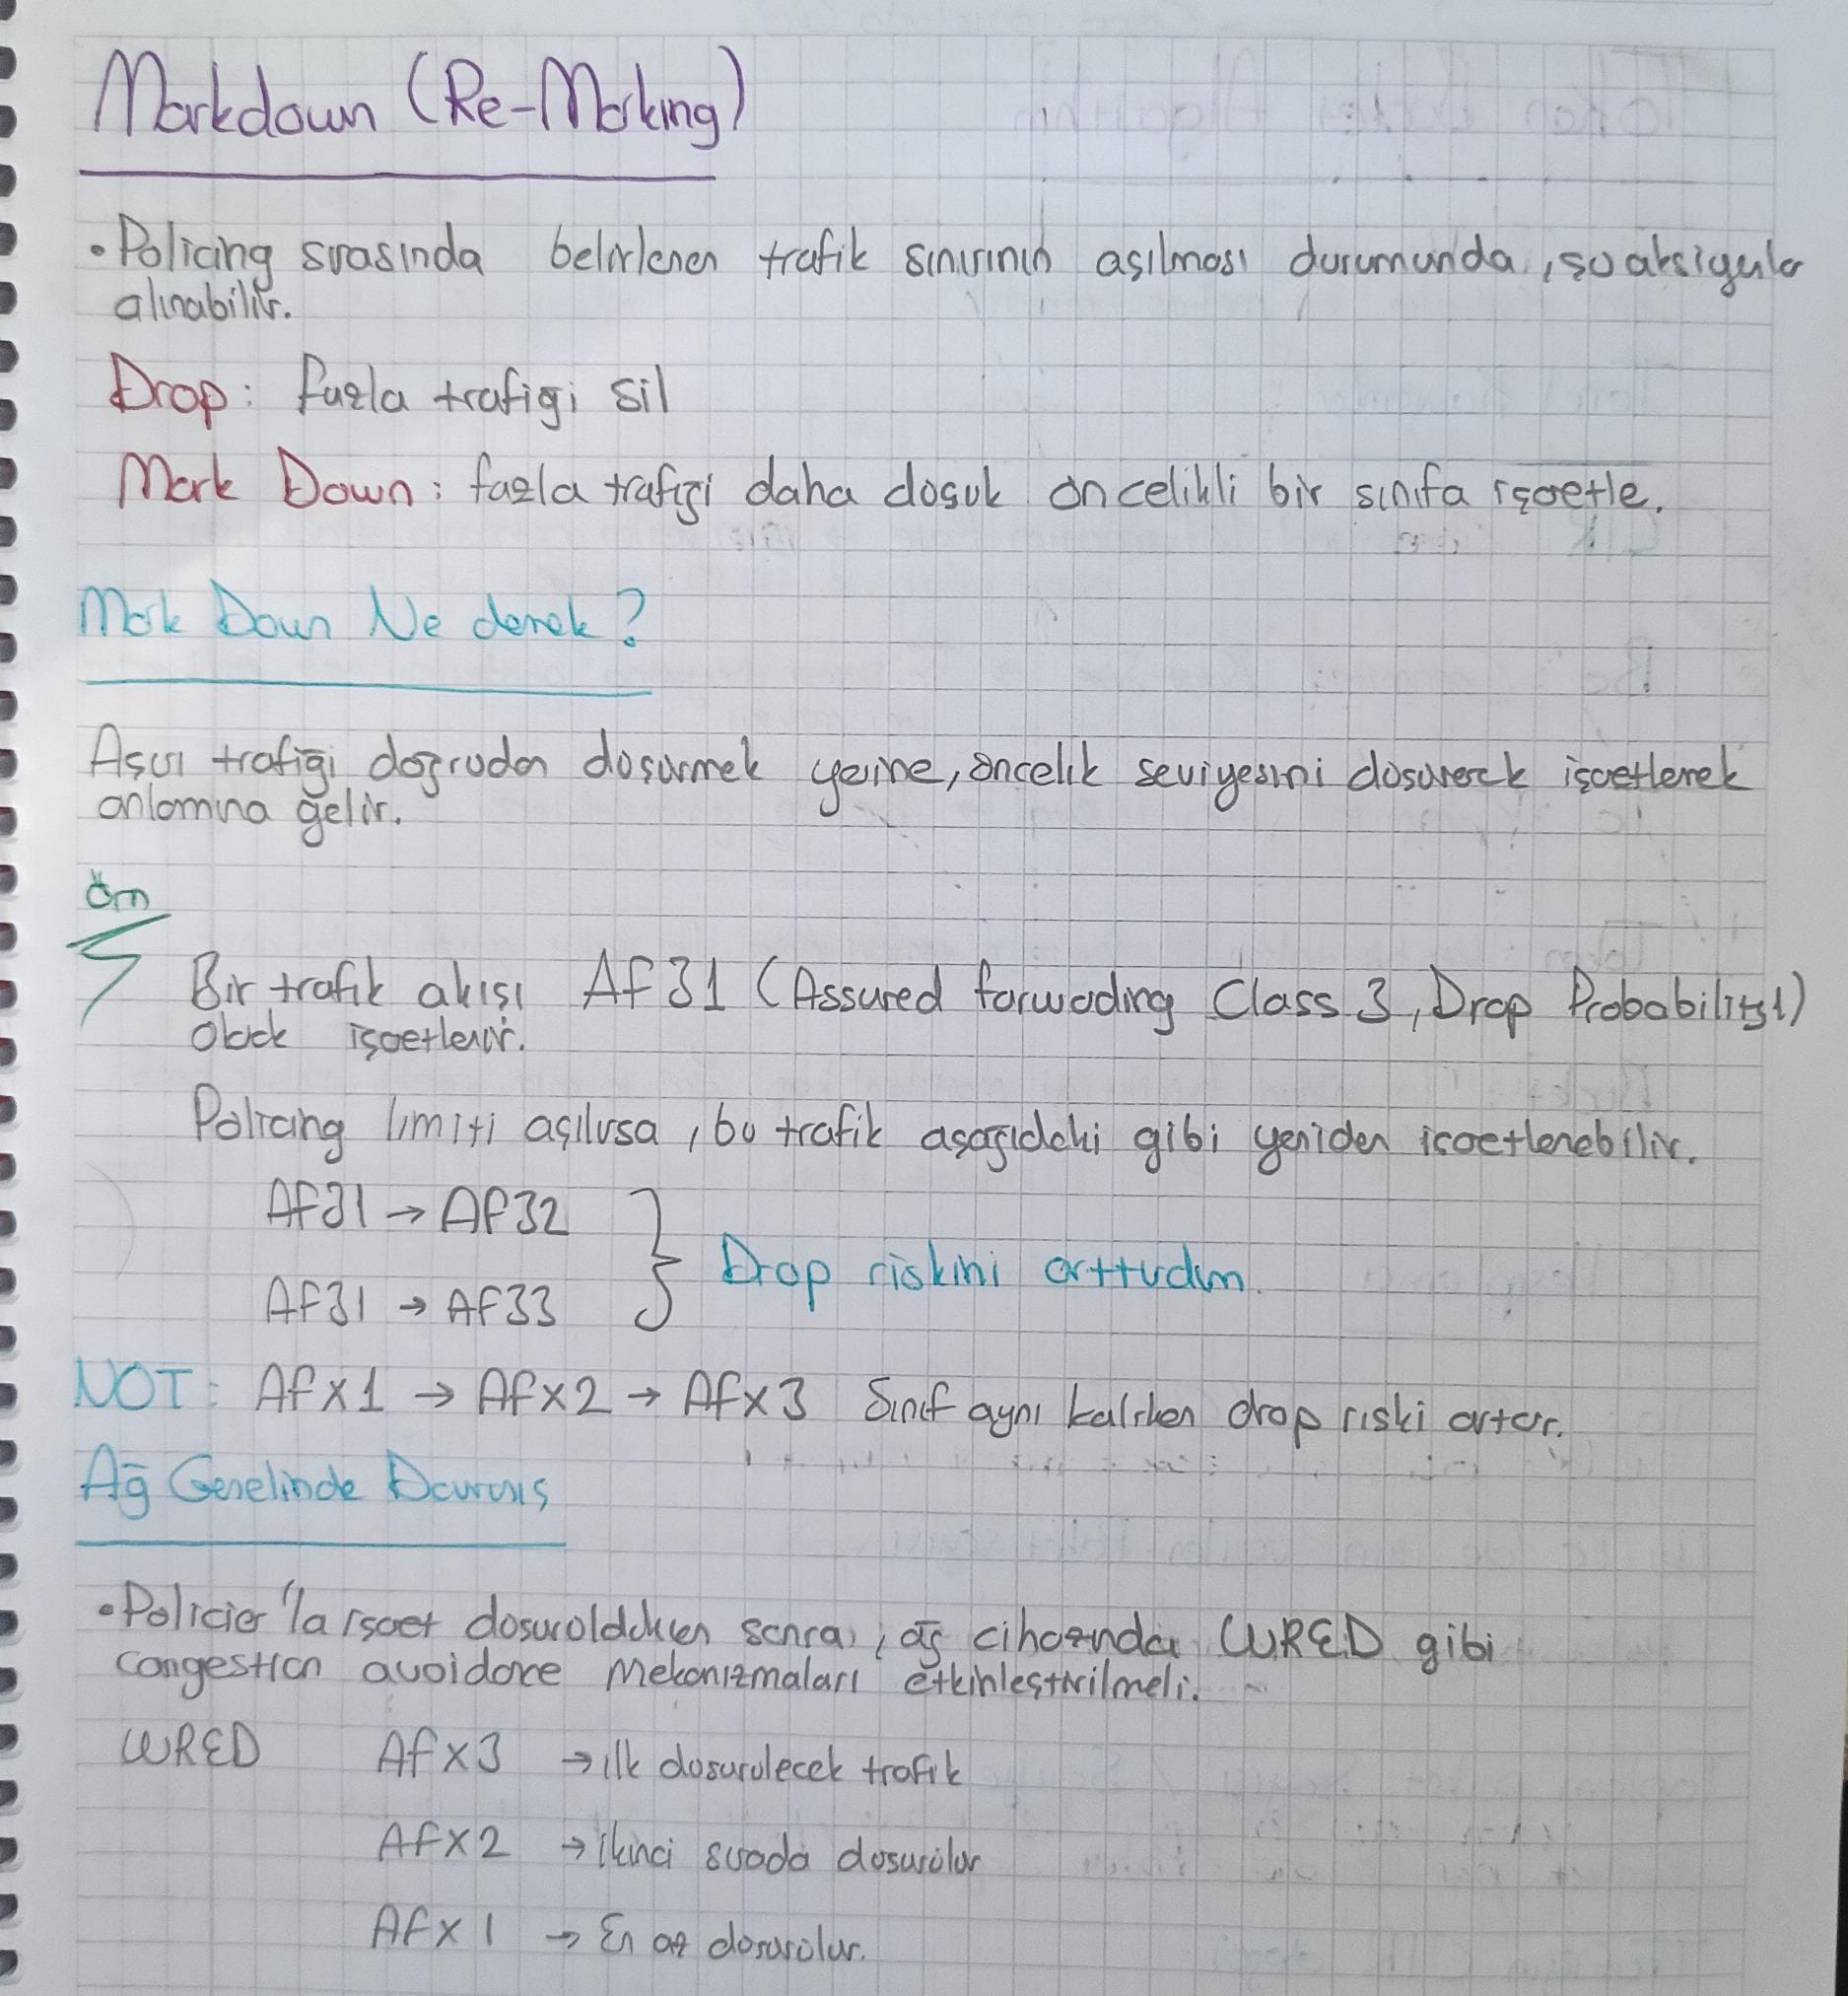 Markdown (Re-Marking)
• Policing sırasında belirlenen trafik sınırının aşılması durumunda, şu aksiyonlar
alınabilir.
Drop: fazla trafiği sil
Mark Down: fazla trafiği daha düşük öncelikli bir sınıfa işaretle.
Mark Down Ne demek?
Aşırı trafiği doğrudan düşürmek yerine, öncelik seviyesini düşürerek işaretlemek
anlamına gelir.
Örn
Bir trafik akışı AF31 (Assured forwarding Class 3, Drop Probability 1)
olarak işaretlenir.
Policing limiti aşılırsa, bu trafik aşağıdaki gibi yeniden işaretlenebilir.
AF31 → AF32
AF31 → AF33
} Drop riskini arttırdım.
NOT: AFX1 → AFX2 → AFX3 Sınıf aynı kalırken drop riski artar.
Ağ Genelinde Davranış
• Policier'la işaret düşürüldükten sonra, ağ cihazında WRED gibi
congestion avoidance mekanizmaları etkinleştirilmeli.
WRED AFX3 → ilk düşürülecek trafik
AFX2 → ikinci sırada düşürülür
AFX1 → En az düşürülür.